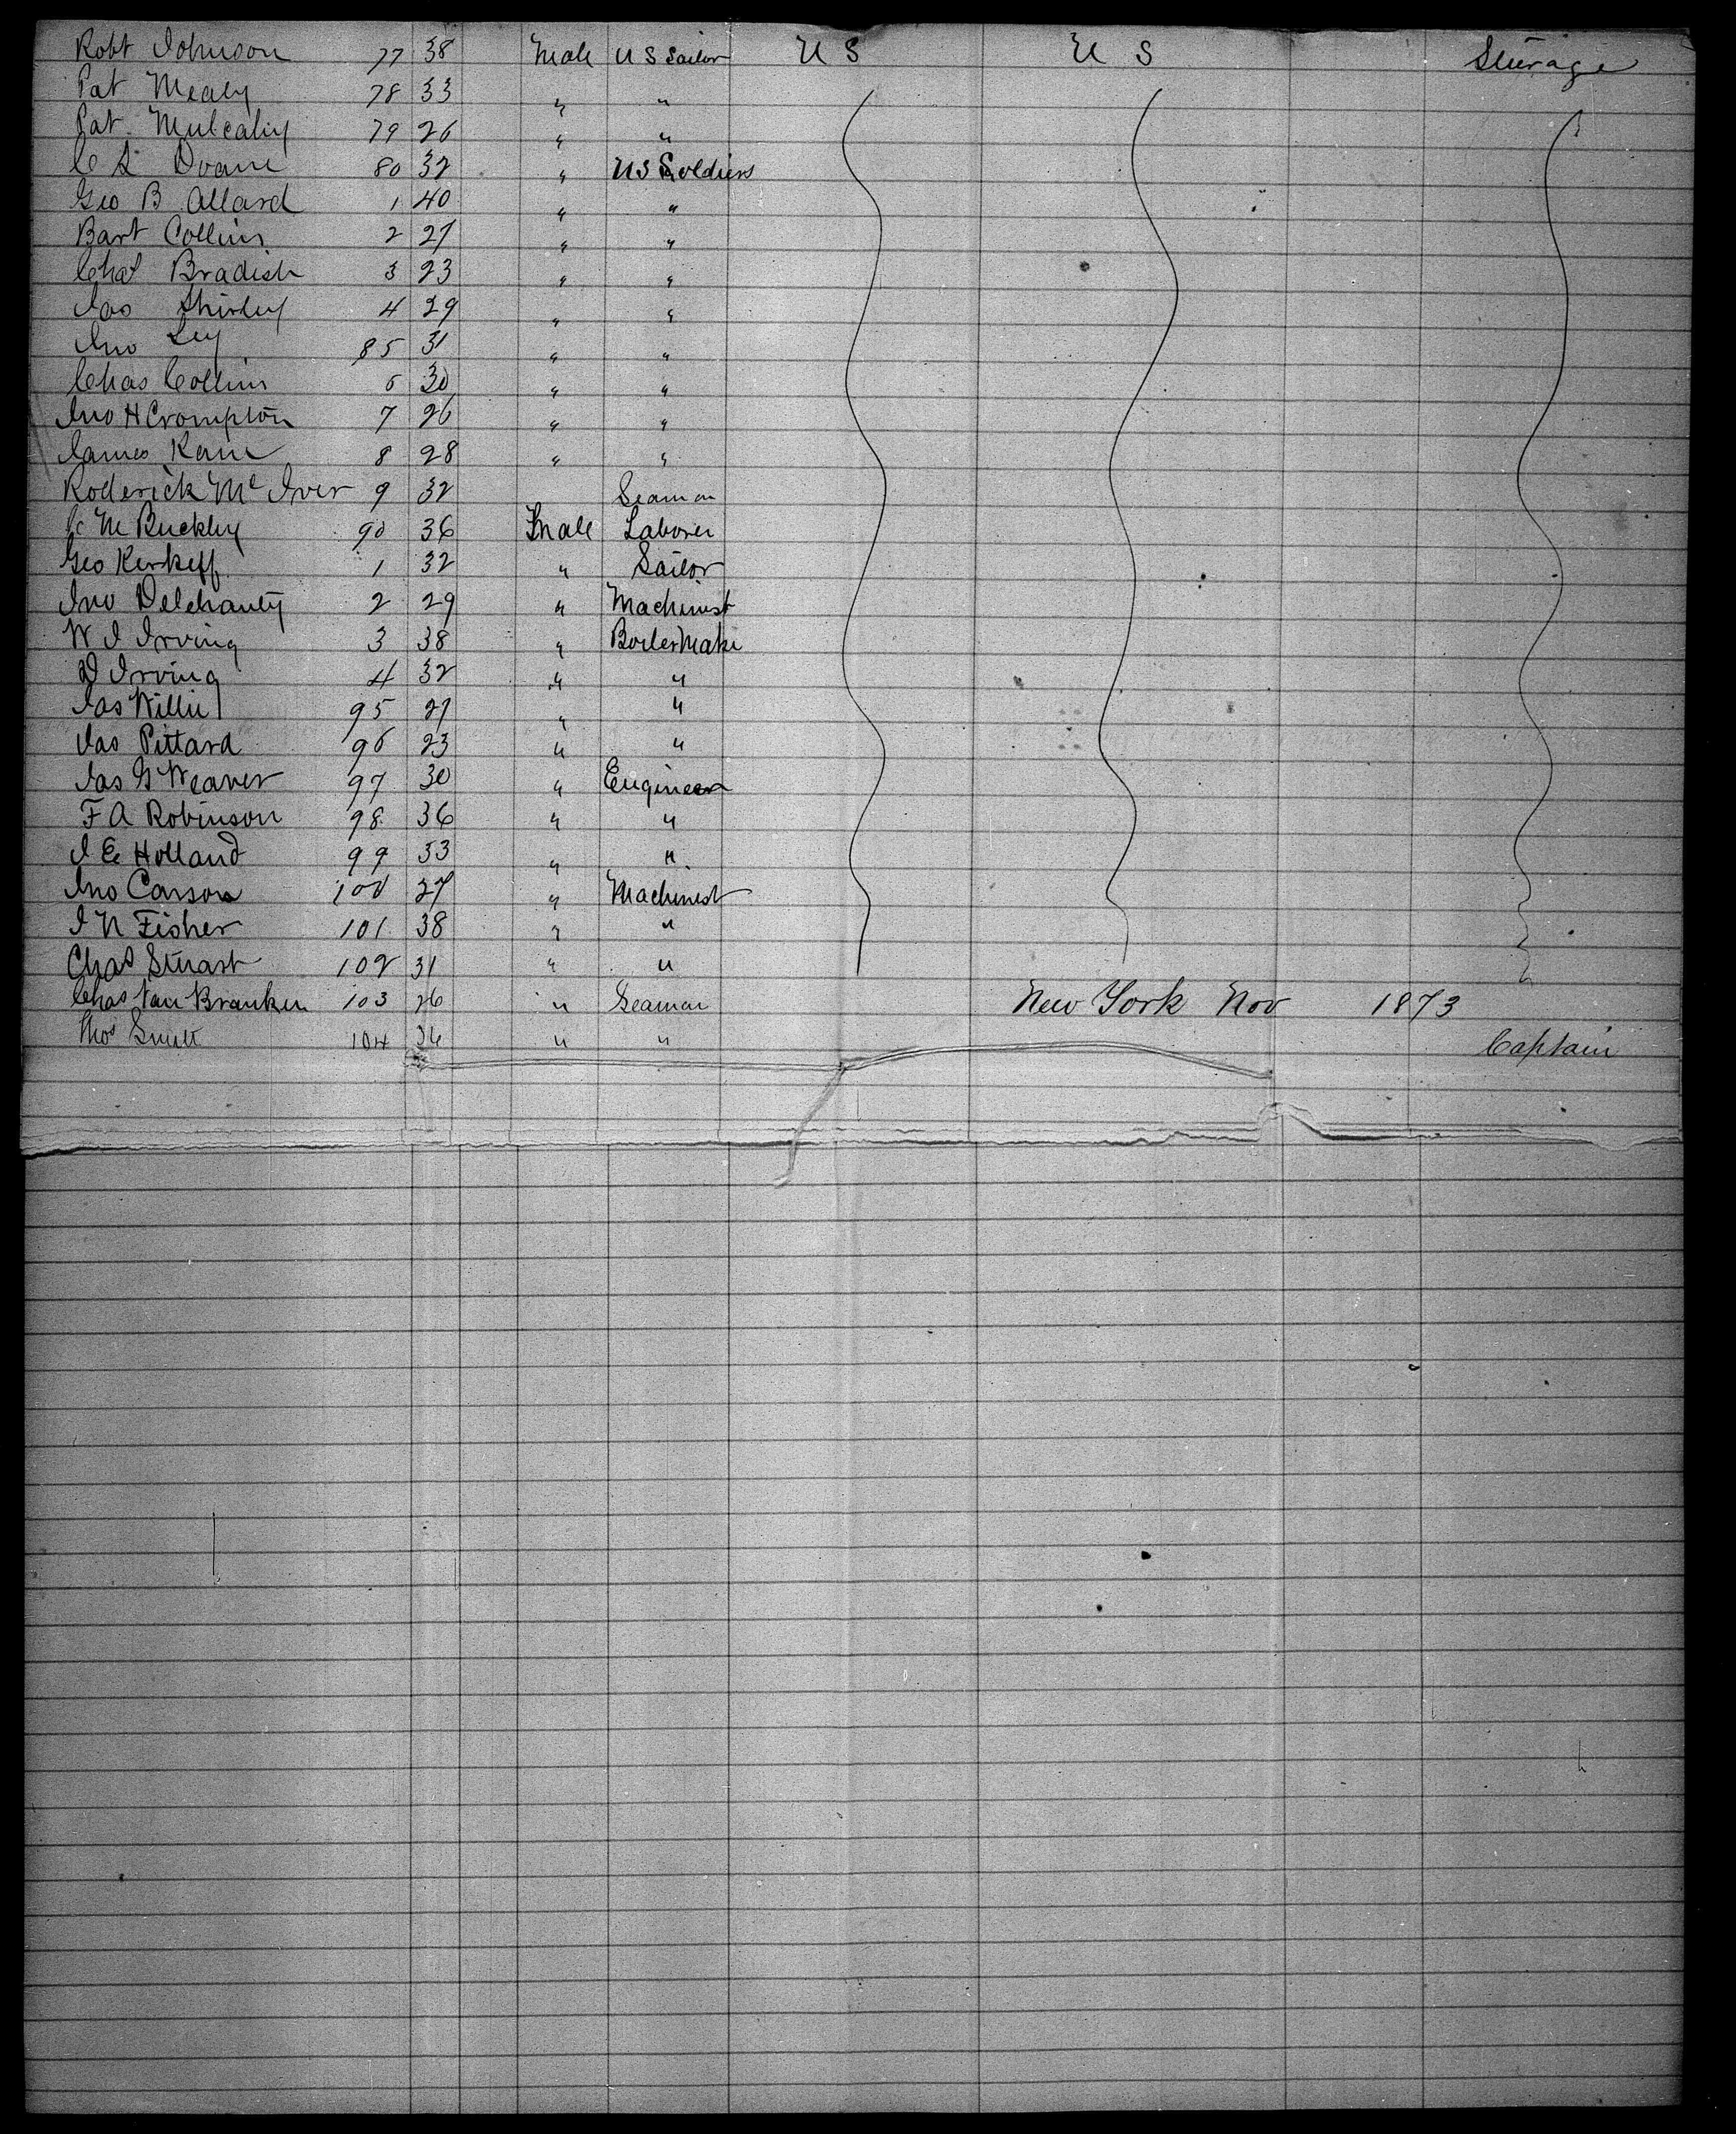 Robt Johnson 77 38 Male U S Sailor U S U S Steerage
Pat Mealy 78 33 " "
Pat Mulcahy 79 26 " "
C L Doane 80 32 " US Soldiers
Geo B Allard 1 40 " "
Bart Collins 2 27 " "
Chas Bradish 3 23 " "
Jas Shirley 4 29 " "
Jno 85 31 " "
Chas Collins 6 30 " "
Jno H Crompton 7 26 " "
James Kane 8 28 " "
Roderick McIver 9 32 Seaman
M Buckley 90 36 Male Laborer
Geo 1 32 " Sailor
Jno Delehanty 2 29 " Machinist
W J Irving 3 38 " BoilerMake
D Irving 4 32 " "
Jas Willis 95 27 " "
Jas Pittard 96 23 " "
Jas G Weaver 97 30 " Engineer
F A Robinson 98 36 " "
J E Holland 99 33 " "
Jno Carson 100 27 " Machinist
J N Fisher 101 38 " "
Chas Stuart 102 31 " "
Chas Van Branken 103 26 " Seaman New York Nov 1873
Thos 104 36 " " Captain